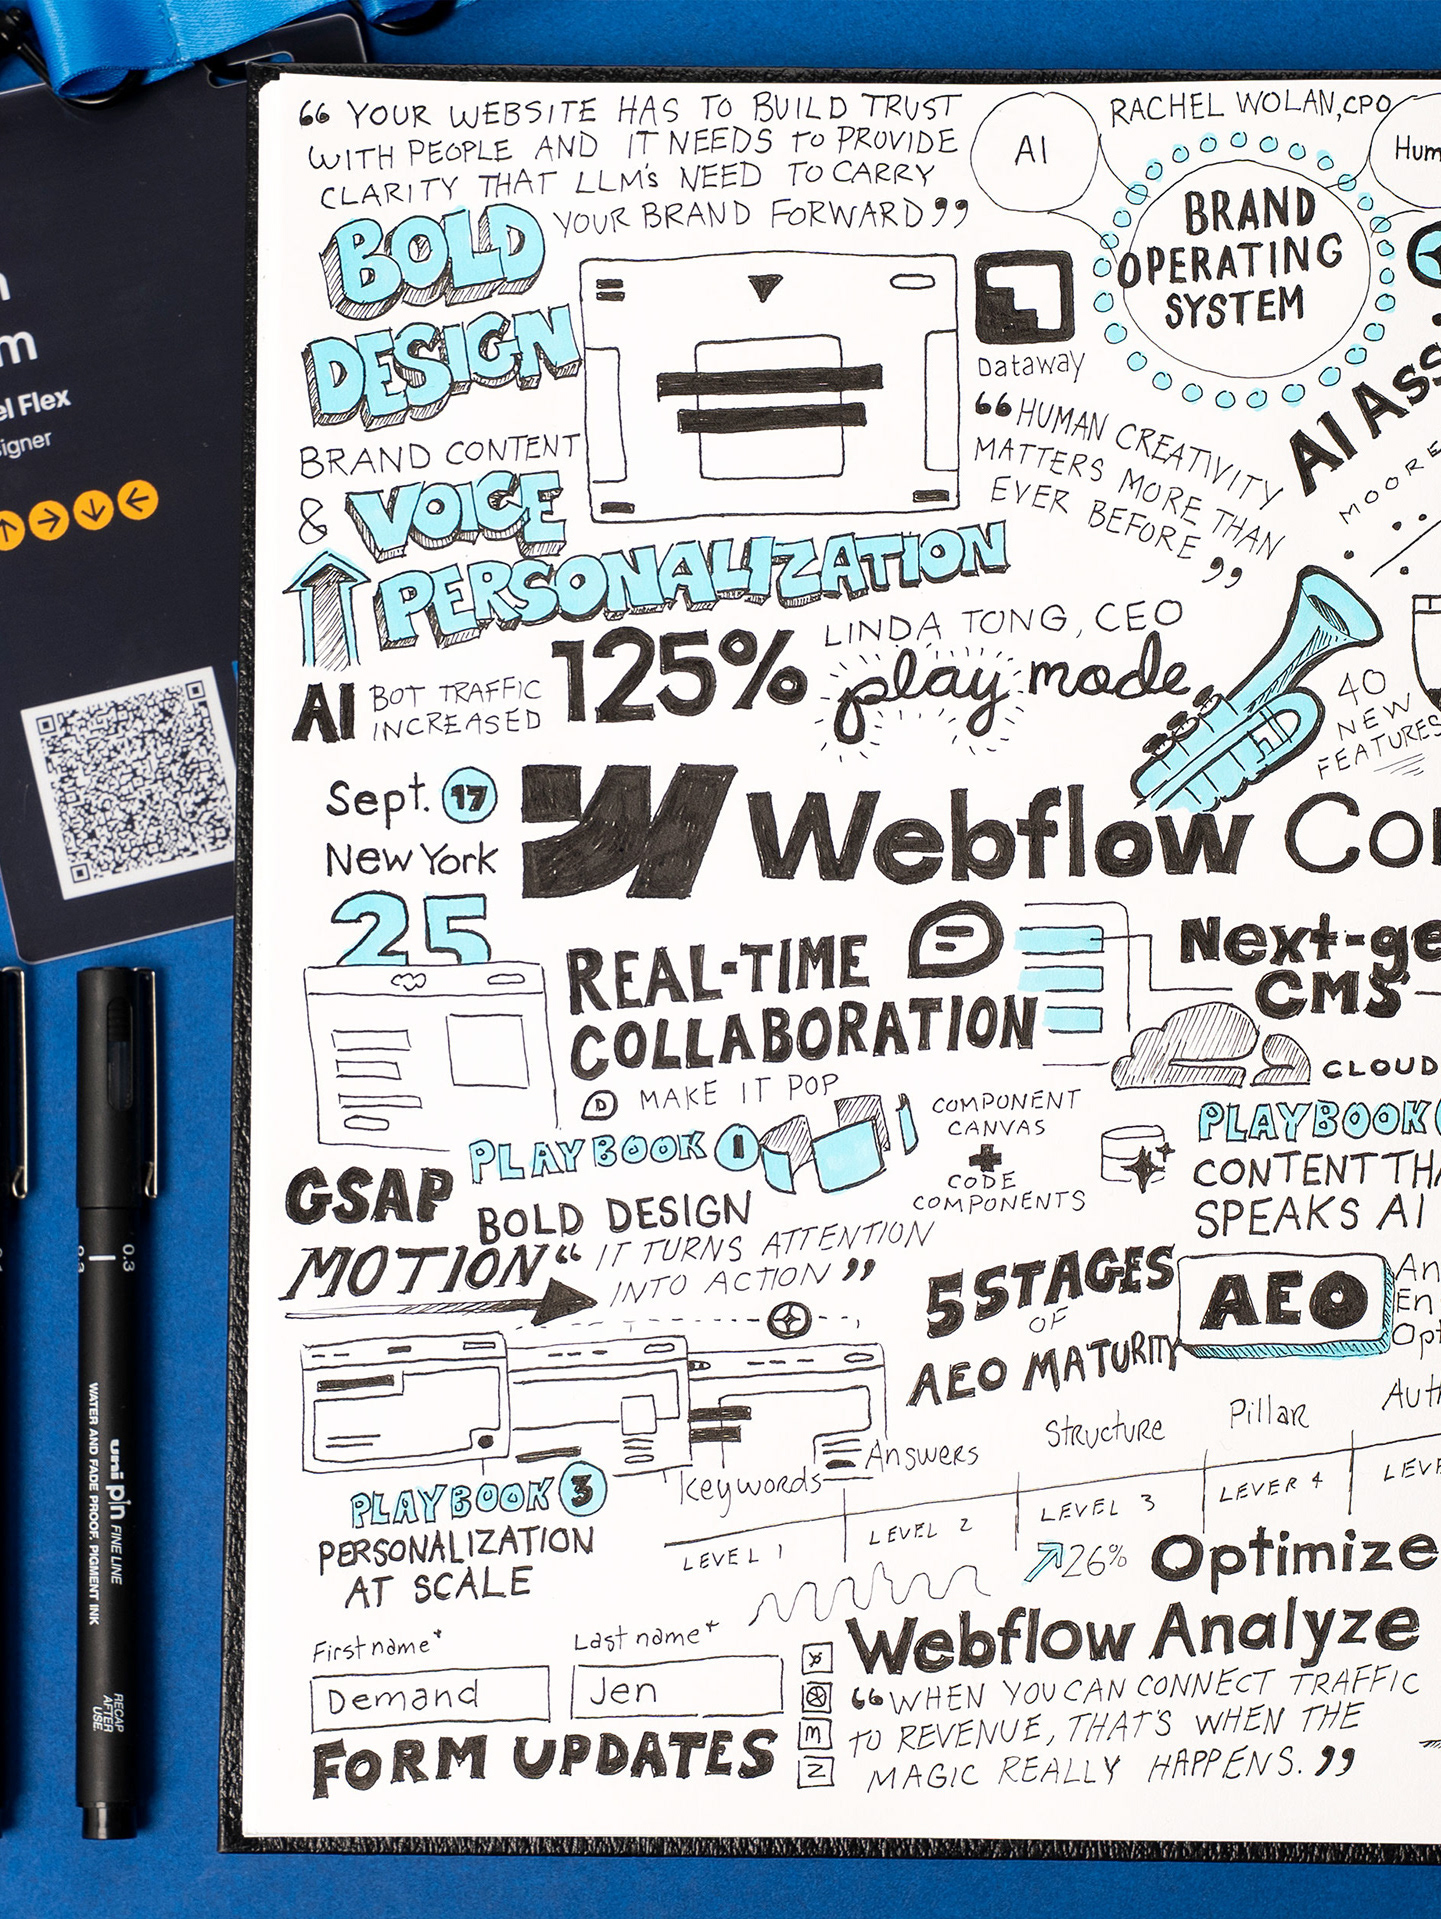 el Flex
igner
WATER AND FADE PROOF, PIGMENT INK
uni pin FINE LINE
0.3
RECAP
AFTER
USE.
“ YOUR WEBSITE HAS TO BUILD TRUST
WITH PEOPLE AND IT NEEDS to PROVIDE
CLARITY THAT LLM's NEED TO CARRY
YOUR BRAND FORWARD ”
BOLD
DESIGN
BRAND CONTENT
& VOICE
PERSONALIZATION
AI BOT TRAFFIC
INCREASED
125%
AI
RACHEL WOLAN, CPO
Hum
BRAND
OPERATING
SYSTEM
Dataway
“ HUMAN CREATIVITY
MATTERS MORE THAN
EVER BEFORE ”
AI Ass
MOORE
LINDA TONG, CEO
play mode
40
NEW
FEATURES
Sept. 17
New York
25
Webflow Con
REAL-TIME
COLLABORATION
D MAKE IT POP
Next-ge
CMS
CLOUD
PLAYBOOK 1
BOLD DESIGN
COMPONENT
CANVAS
+
CODE
COMPONENTS
PLAYBOOK
CONTENT THA
SPEAKS AI
GSAP
MOTION
“ IT TURNS ATTENTION
INTO ACTION ”
5 STAGES
OF
AEO MATURITY
AEO
An
En
Opt
PLAYBOOK 3
PERSONALIZATION
AT SCALE
Keywords
Answers
Structure
Pillar
Auth
LEVEL 1
LEVEL 2
LEVEL 3
LEVER 4
LEVE
26%
Optimize
Webflow Analyze
“ WHEN YOU CAN CONNECT TRAFFIC
TO REVENUE, THAT'S WHEN THE
MAGIC REALLY HAPPENS. ”
First name*
Last name*
Demand
Jen
FORM UPDATES